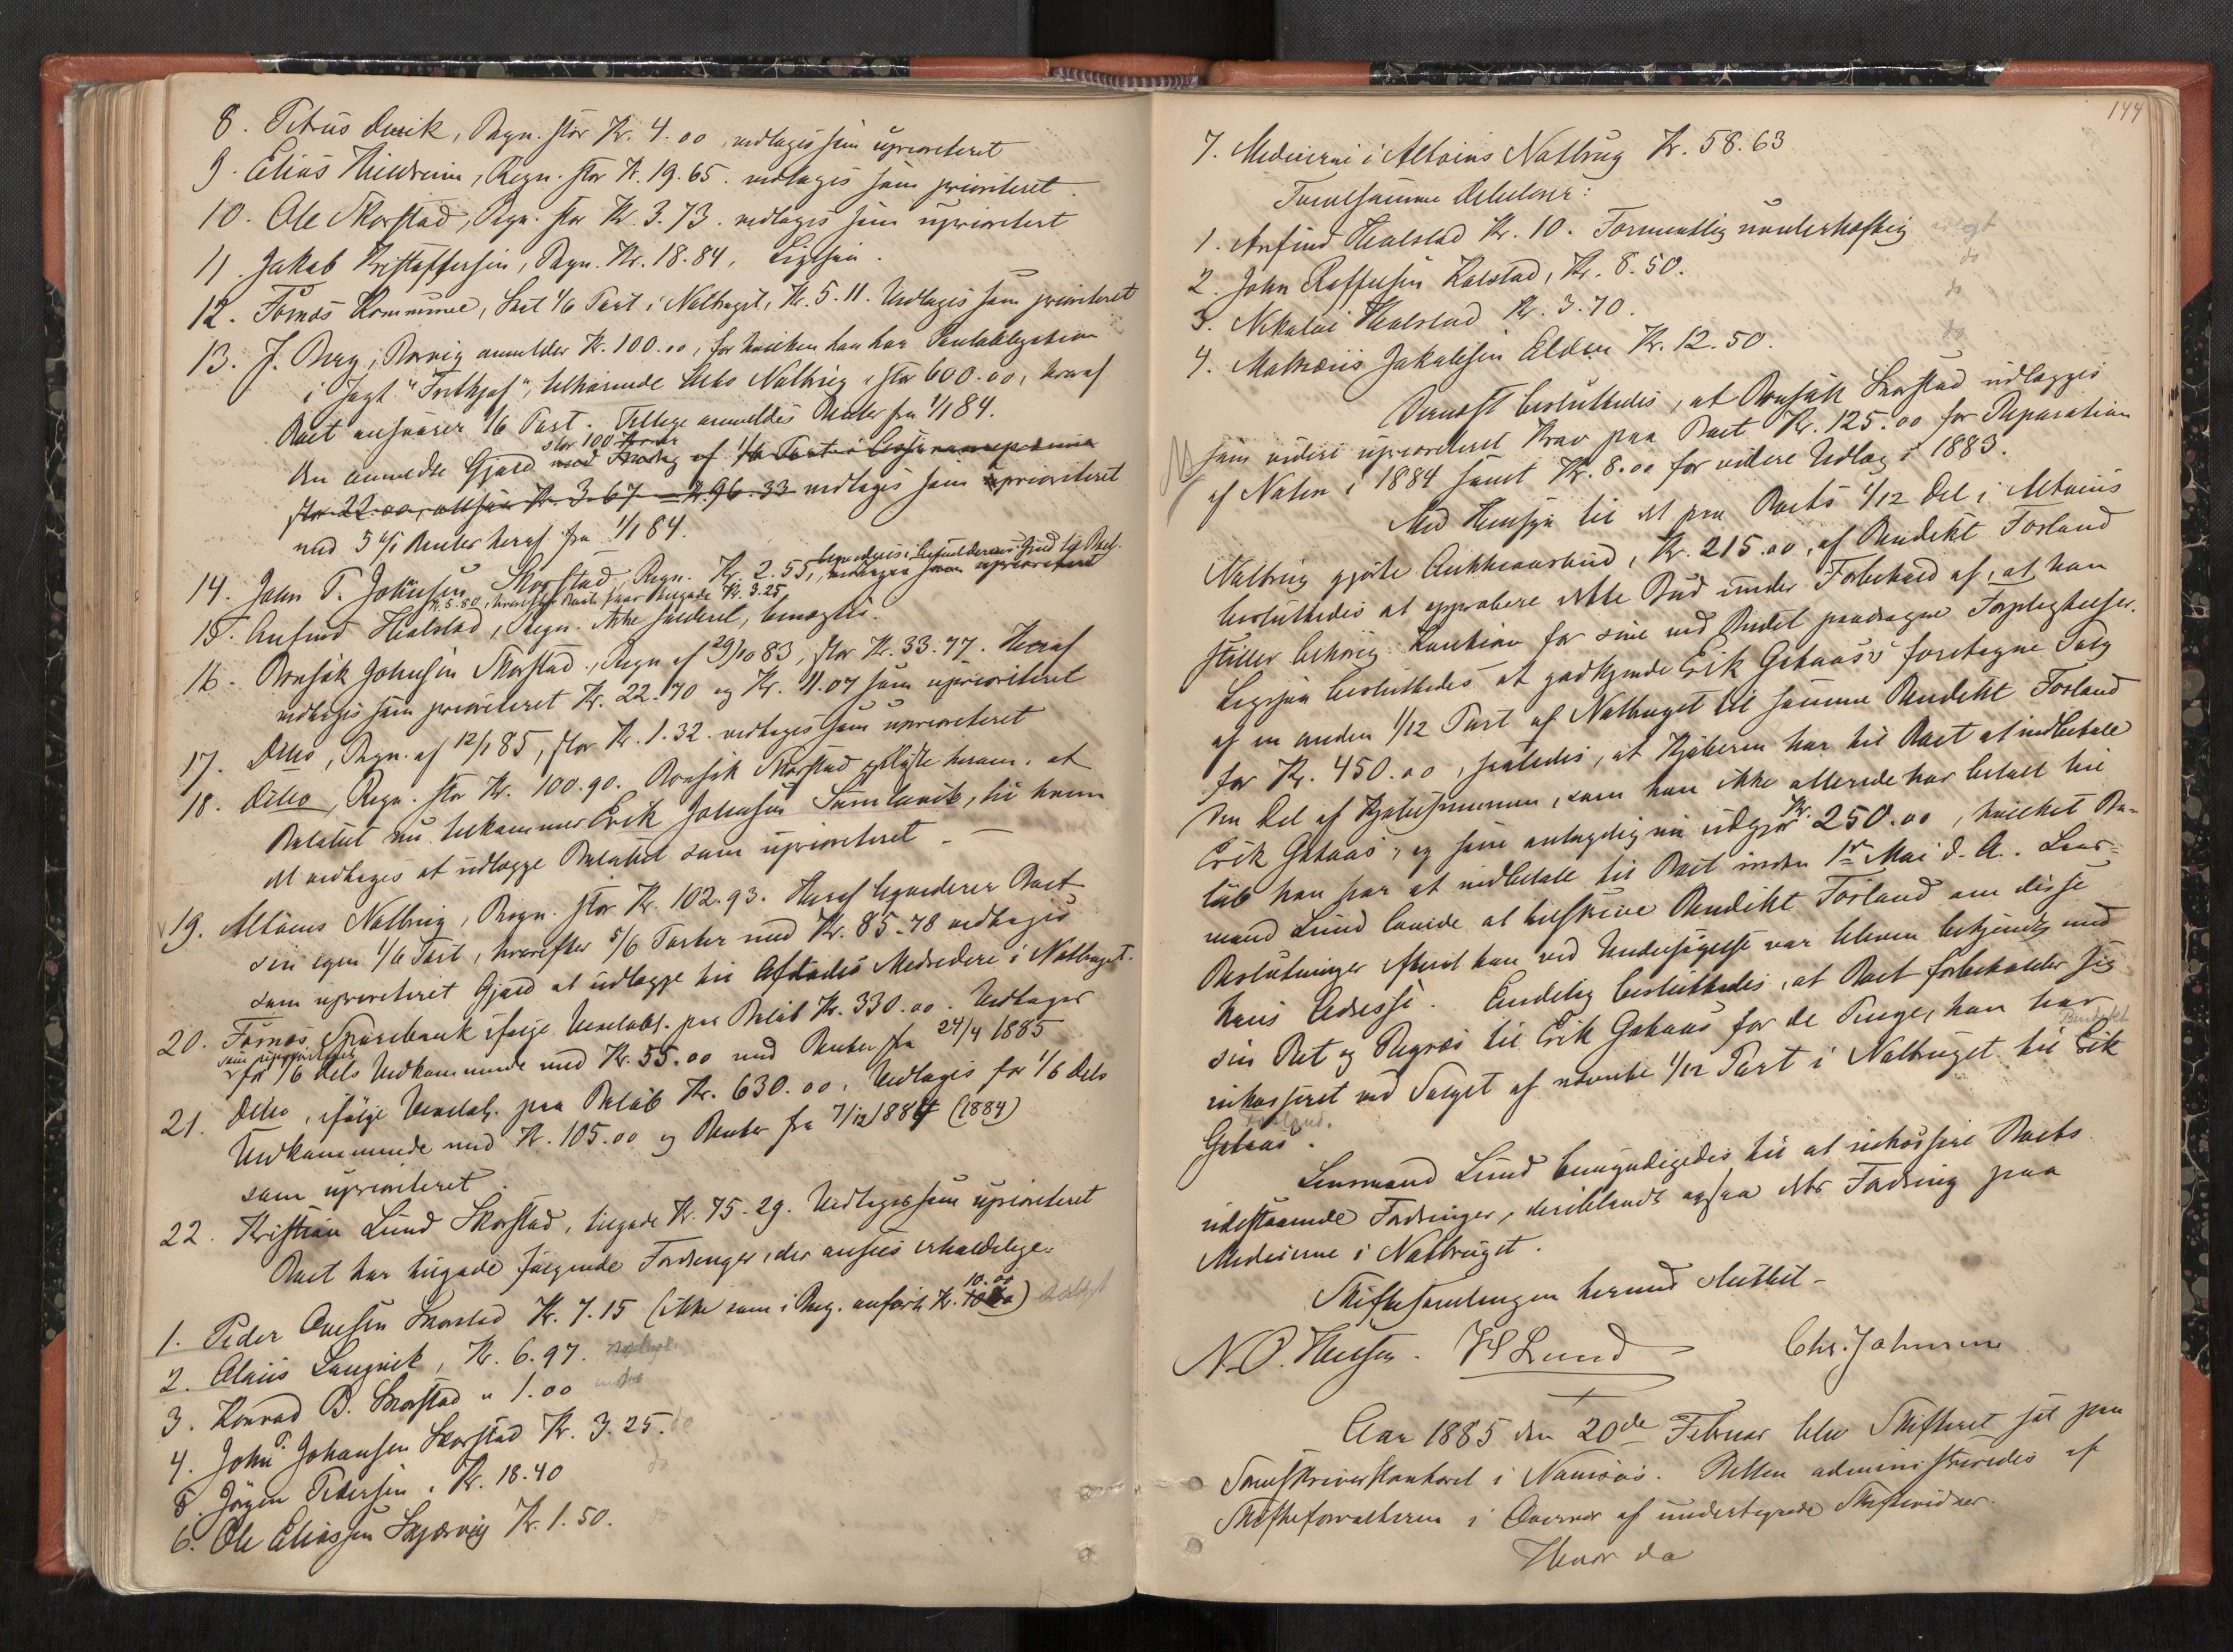 8. Petrus Duvik, Regn. stor Kr. 4.00, vedtages som uprioriteret
9. Elias , Regn. stor Kr. 19.65. vedtages som prioriteret.
10. Ole Skorstad, Regn. stor Kr. 3.73. vedtages som uprioritert
11. Jakob Kristoffersen, Regn. Kr. 18.84, Ligesaa.
12. Fosnæs Kommune, Skat 1/6 Part i Notbruget, Kr. 5.11. Vedtages som prioriteret
13. J. Berg, Rørvig anmelder Kr. 100.00, for hvilken han har Panteobligation
i Jagt "Frithjof", tilhørende Notbrug, stor 600.00, hvoraf
Boet ansvarer 1/6 Part. Tillige anmeldes Renter fra 1/1 84.
stor 100 Kroner
Den anmeldte Gjæld med Fradrag af 1/6 Part i
stor 22.00, altsaa Kr. 3.67 = 96.33 vedtages som uprioriteret
med 5 % Renter heraf fra 1/1 84.
14. John P. Johnsen Skorstad, Regn. Kr. 2.55, vedtages som uprioriteret
Kr. 5.80, hvorefter Boets Kr. 3.25
15. Anfind Healstad, Regn. Ikke , benægtes.
16. Johnsen Skorstad, Regn. af 29/10 83, stor Kr. 33.77. Heraf
vedtages som prioriteret Kr. 22.70 og Kr. 11.07 som uprioriteret
17. Ditto, Regn. af 12/1 85, stor Kr. 1.32. vedtages som uprioriteret
18. Ditto, Regn. stor Kr. 100.90. Skorstad oplyste herom, at
Beløbet nu tilkommer Erik Johnsen , til hvem
det vedtages at udlægge Beløbet som uprioriteret –
19. Altøens Notbrug, Regn. stor Kr. 102.93. Heraf Boet
sin egen 1/6 Part, hvorefter 5/6 Parter med Kr. 85.78 vedtages
som uprioriteret Gjæld at udlægge til Afdødes Medredere i Notbruget.
20. Fosnæs Sparebank ifølge Vexelobl. paa Beløb Kr. 330.00. Vedtages
som uprioriteret
for 1/6 Dels Vedkommende med Kr. 55.00 med Renter fra 24/4 1885
21. Ditto, ifølge Vexelobl. paa Beløb Kr. 630.00. Vedtages for 1/6 Dels
Vedkommende med Kr. 105.00 og Renter fra 7/12 1884 (1884)
som uprioriteret.
22. Kristian Lund Skorstad, tilgode Kr. 75.29. Vedtages som uprioriteret
Boet har tilgode følgende Fordringer, der ansees erholdelige:
10.00
1. Peder Ovesen Skorstad Kr. 7.15 (ikke som i Reg. anført Kr. )
2. Olaus Langvik, Kr. 6.97.
3. Konrad B. Skorstad " 1.00
4. John P. Johansen Skorstad Kr. 3.25. do
5. Jørgen Pedersen, Kr. 18.40 do
6. Ole Eliassen Kr. 1.50.
144
7. Medeierne i Altøens Notbrug Kr. 58.63
Tvivlsomme Debitorer:
1. Anfind Healstad Kr. 10. Formentlig uvederhæftig
2. John Kalstad, Kr. 8.50. do
3. Nikolai Healstad Kr. 3.70. do
4. Mathæus Jakobsen Elden Kr. 12.50. do
Dernæst besluttedes, at Skorstad udlægges
som videre uprioriteret Krav paa Boet Kr. 125.00 for Reparation
af Noten i 1884 samt Kr. 8.00 for videre Udlæg i 1883.
Med Hensyn til det paa Boets 1/12 Del i Altøens
Notbrug gjorte Auktionsbud, Kr. 215.00, af Bendikt Forland
besluttedes at approbere dette Bud under Forbehold af, at han
stiller behørig Kaution for sine ved Budet paadragne Forpligtelser.
Ligesaa besluttedes at godkjende Erik Gataas's foretagne Salg
af en anden 1/12 Part af Notbruget til samme Bendikt Forland
for Kr. 450.00, saaledes, at Kjøberen har til Boet at indbetale
den Del af Kjøbesummen, som han ikke allerede har betalt til
Erik Gataas, og som antagelig nu udgjør Kr. 250.00, hvilket Be-
løb han har at indbetale til Boet inden 1ste Mai d. A. Lens-
mand Lund lovede at tilskrive Bendikt Forland om disse
Beslutninger efterat han ved Undersøgelse var bleven bekjendt med
hans Adresse. Endelig besluttedes, at Boet forbeholder sig
sin Ret og Regres til Erik Gataas for de Penge, han har
Bendikt
inkasseret ved Salget af nævnte 1/12 Part i Notbruget til Erik
Forland.
Gataas.
Lensmand Lund bemyndigedes til at inkassere Boets
udestaaende Fordringer, deriblandt ogsaa dets Fordring paa
Medeierne i Notbruget.
Skiftesamlingen hermed sluttet –
N. O. Hansen. H Lund – Chr. Johnsen
Aar 1885 den 20de Februar blev Skifteret sat paa
Sorenskriverkontoret i Namsos. Retten administreredes af
Skifteforvalteren i Overvær af undertegnede Skiftevidner.
Hvor da